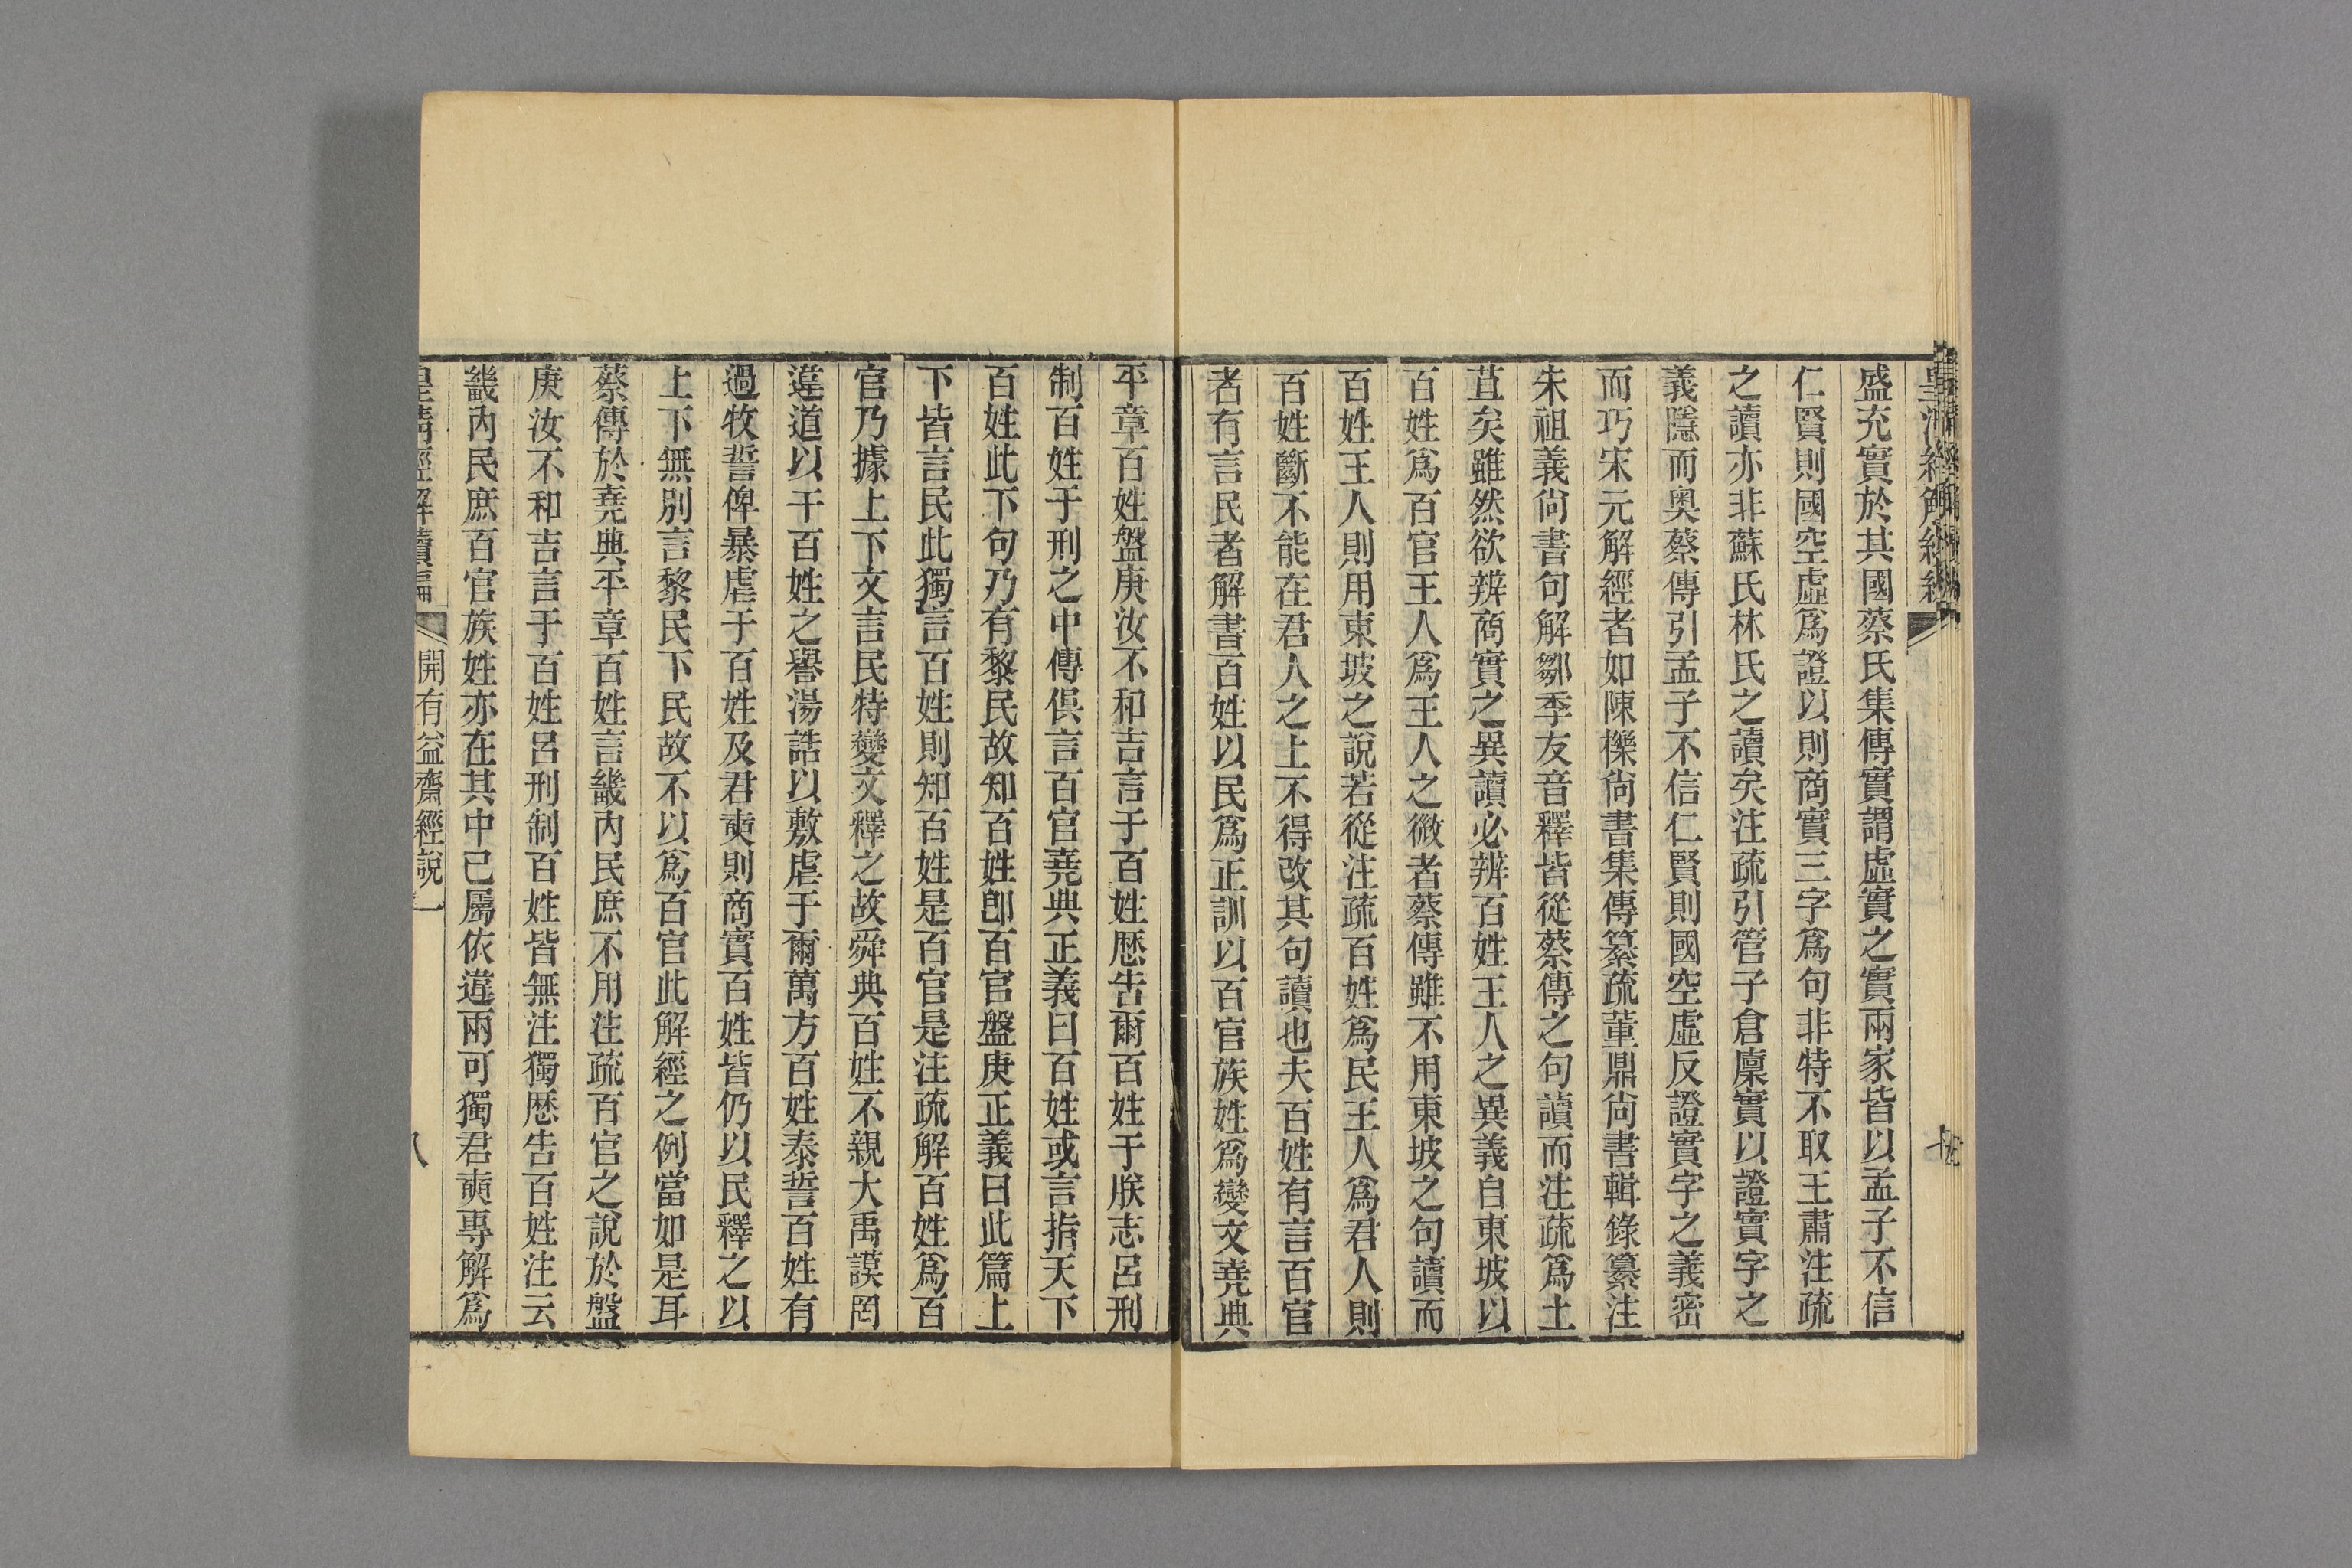 盛充實於其國蔡氏集傳實謂虛實之實兩家皆以孟子不信
仁賢則國空虛爲證以則商實三字爲句非特不取王肅注疏
之讀亦非蘇氏林氏之讀矣注疏引管子倉廩實以證實字之
義隱而奧蔡傳引孟子不信仁賢則國空虛反證實字之義密
而巧宋元解經者如陳櫟尙書集傳纂疏董鼎尙書輯錄纂注
朱祖義尙書句解鄒季友音釋皆從蔡傳之句讀而注疏爲土
苴矣雖然欲辨商實之異讀必辨百姓王人之異義自東坡以
百姓爲百官王人爲王人之微者蔡傳雖不用東坡之句讀而
百姓王人則用東坡之說若從注疏百姓爲民王人爲君人則
百姓斷不能在君人之上不得改其句讀也夫百姓有言百官
者有言民者解書百姓以民爲正訓以百官族姓爲變文堯典
平章百姓盤庚汝不和吉言于百姓歷告爾百姓于朕志呂刑
制百姓于刑之中傳俱言百官堯典正義曰百姓或言指天下
百姓此下句乃有黎民故知百姓卽百官盤庚正義曰此篇上
下皆言民此獨言百姓則知百姓是百官是注疏解百姓爲百
官乃據上下文言民特變文釋之故舜典百姓不親大禹謨罔
違道以干百姓之譽湯誥以敷虐于爾萬方百姓泰誓百姓有
過牧誓俾暴虐于百姓及君奭則商實百姓皆仍以民釋之以
上下無別言黎民下民故不以爲百官此解經之例當如是耳
蔡傳於堯典平章百姓言畿內民庶不用注疏百官之說於盤
庚汝不和吉言于百姓呂刑制百姓皆無注獨歷告百姓注云
畿內民庶百官族姓亦在其中已屬依違兩可獨君奭專解爲
皇淸經解續編 開有益齋經說一 八